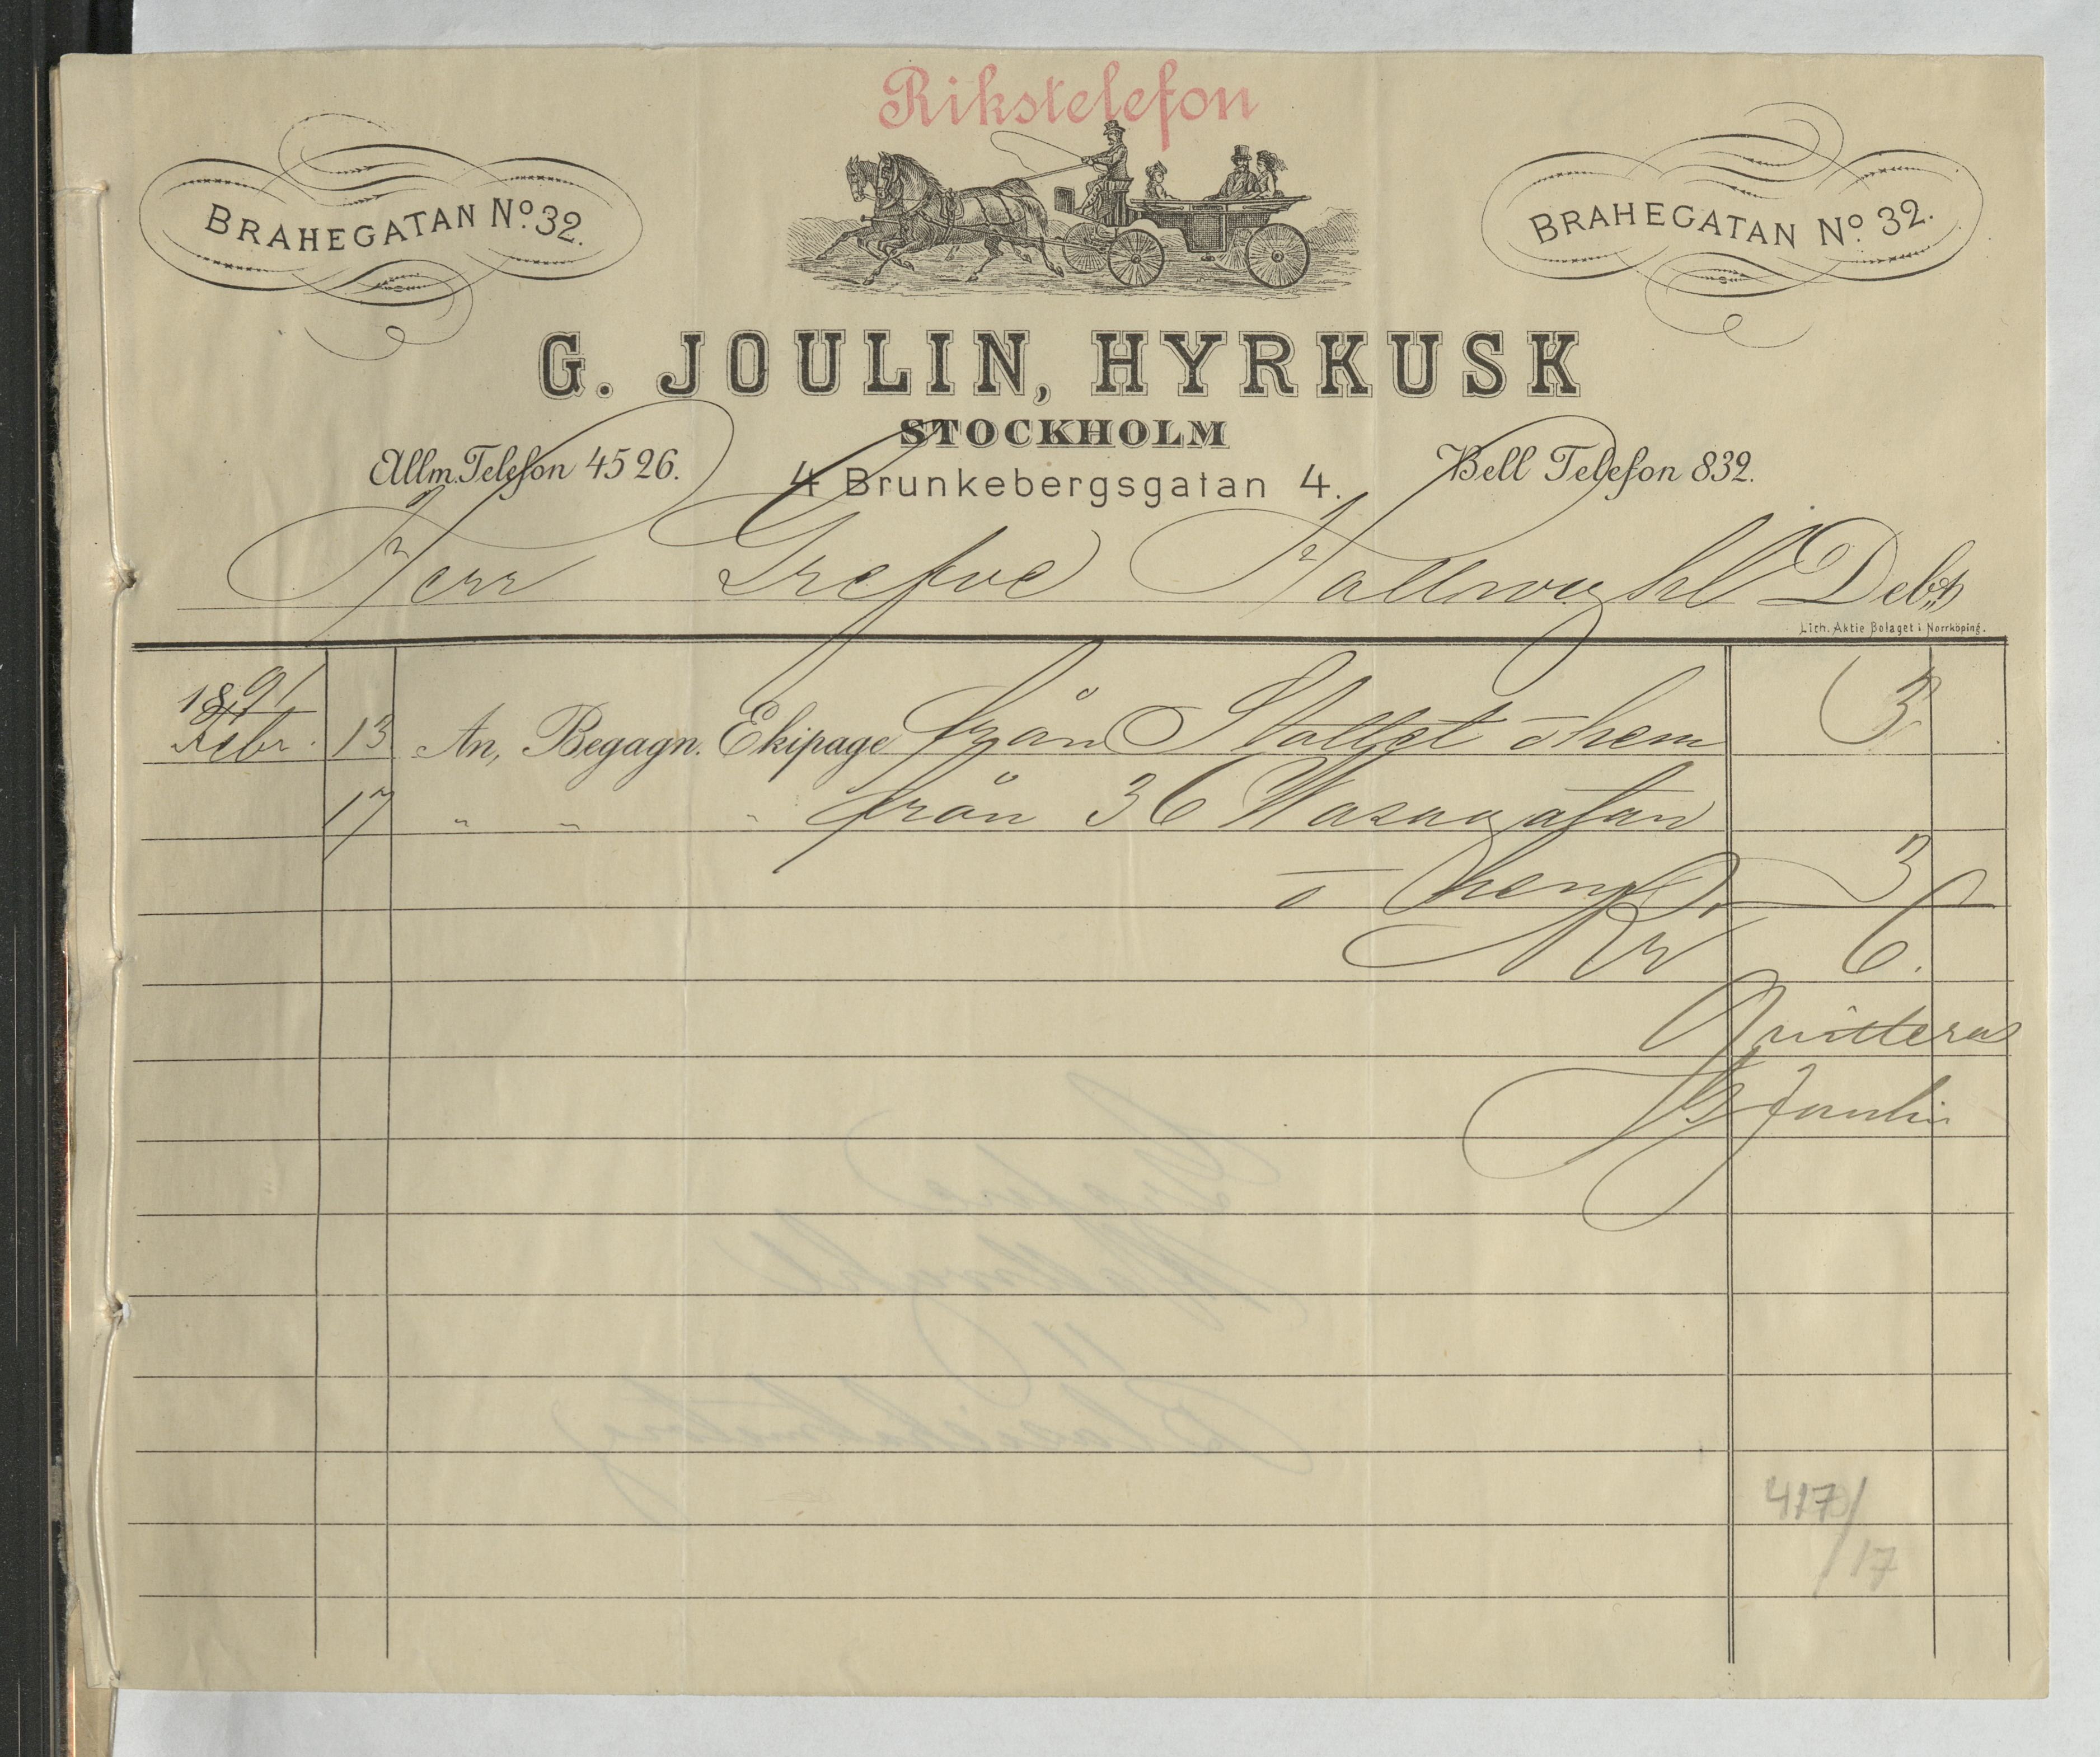 Rikstelefon
BRAHEGATAN No. 32.
BRAHEGATAN No. 32.
G. JOULIN, HYRKUSK
STOCKHOLM
Allm. Telefon 4526.
4 Brunkebergsgatan 4.
Bell Telefon 832.
Herr Grefve Hallwyhl Debet
Lith. Aktie Bolaget i Norrköping.
1891
Febr. 13 An, Begagn. Ekipage från Slottet o hem 3
17 " " " från 36 Wasagatan
o hem 3
Kr 6.
Qvitteras
G Joulin
417/
17